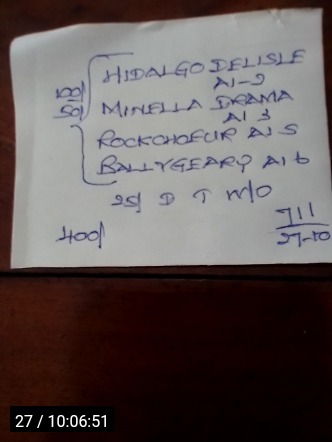 100/ HIDALGO DELISLE
A1-2
50/ MINELLA DRAMA
A1 3
ROCKCHOEUR A1 5
BALLYGEARY A1 6
25/ D T W/O
400/
711
27-10
27 / 10:06:51